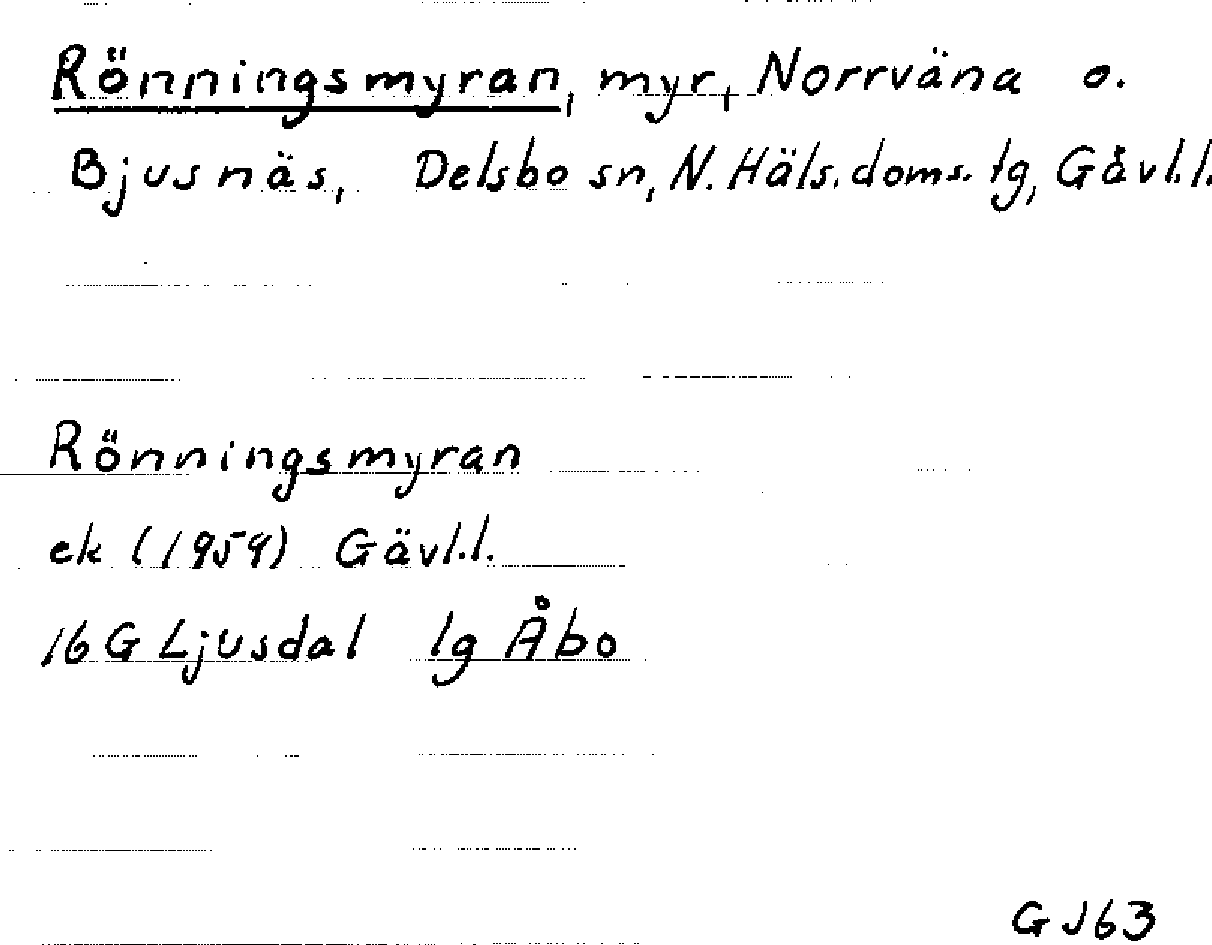 Rönningsmyran, myr, Norrväna o.
Bjusnäs, Delsbo sn, N. Häls. doms. lg, Gävl.l.
Rönningsmyran
ek (1959) Gävl.l.
16G Ljusdal lg Åbo
GJ63